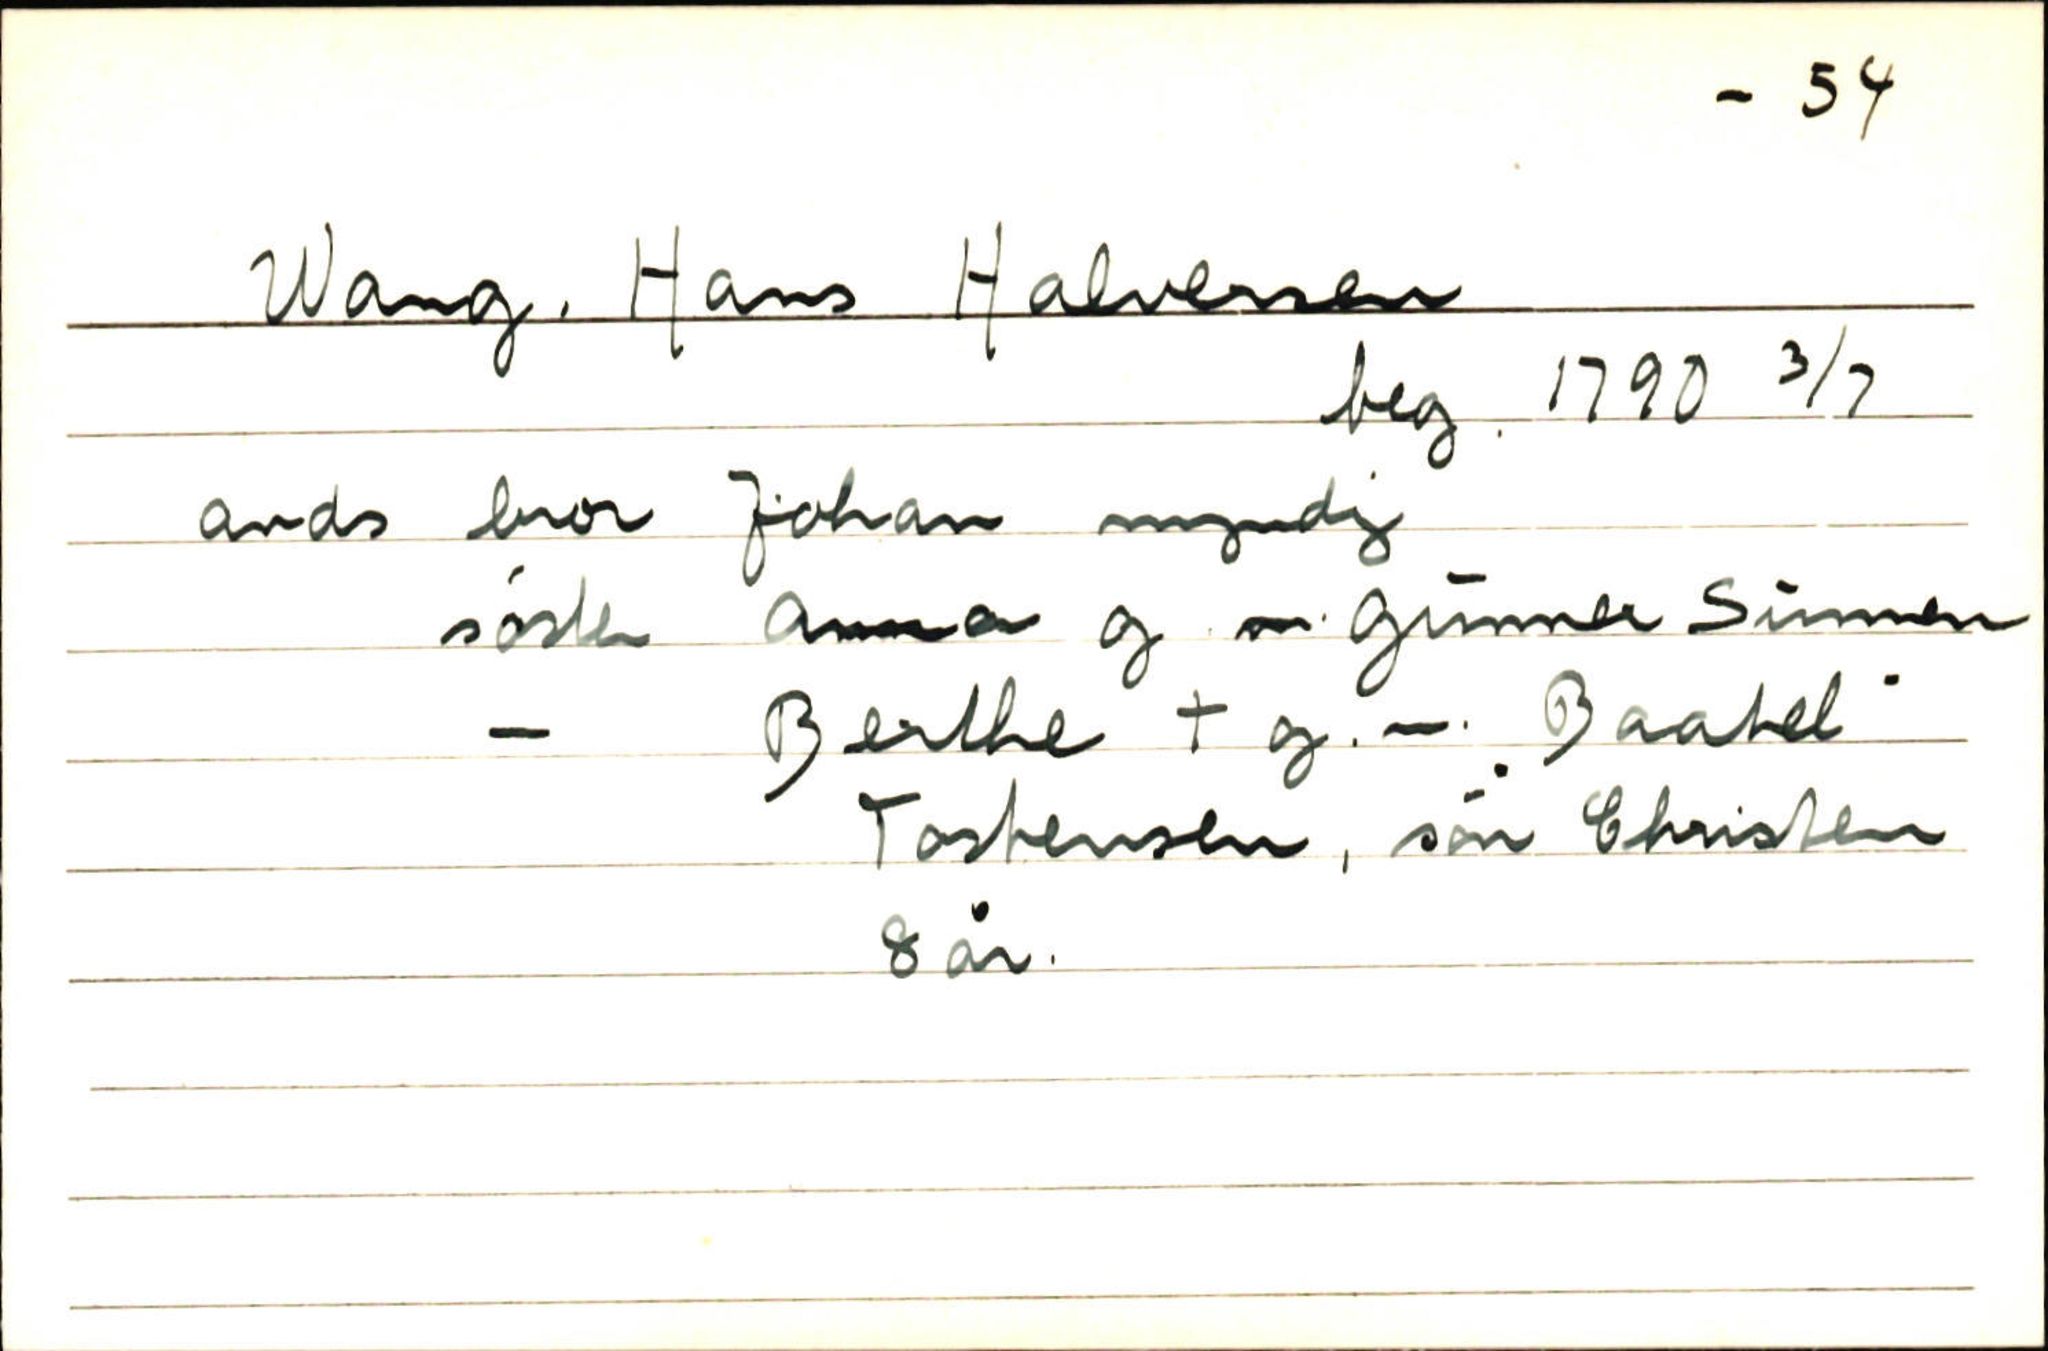 - 54
Wang, Hans Halversen
beg. 1790 3/7
ands bror Johan myndig
söster Anna g. m. Gunner Sunnen
- Berthe + g. m. Baatel
Tostensen, sön Christen
8 år.